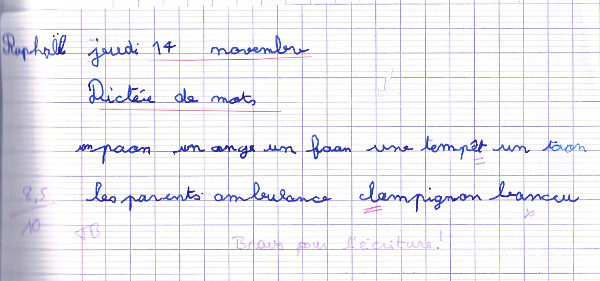 Raphaël jeudi 14 novembre
Dictée de mots
un paon un ange un faon une tempêt un taon
8,5 les parents ambulance clampignon bancu
10 TB Bravo pour l'écriture !